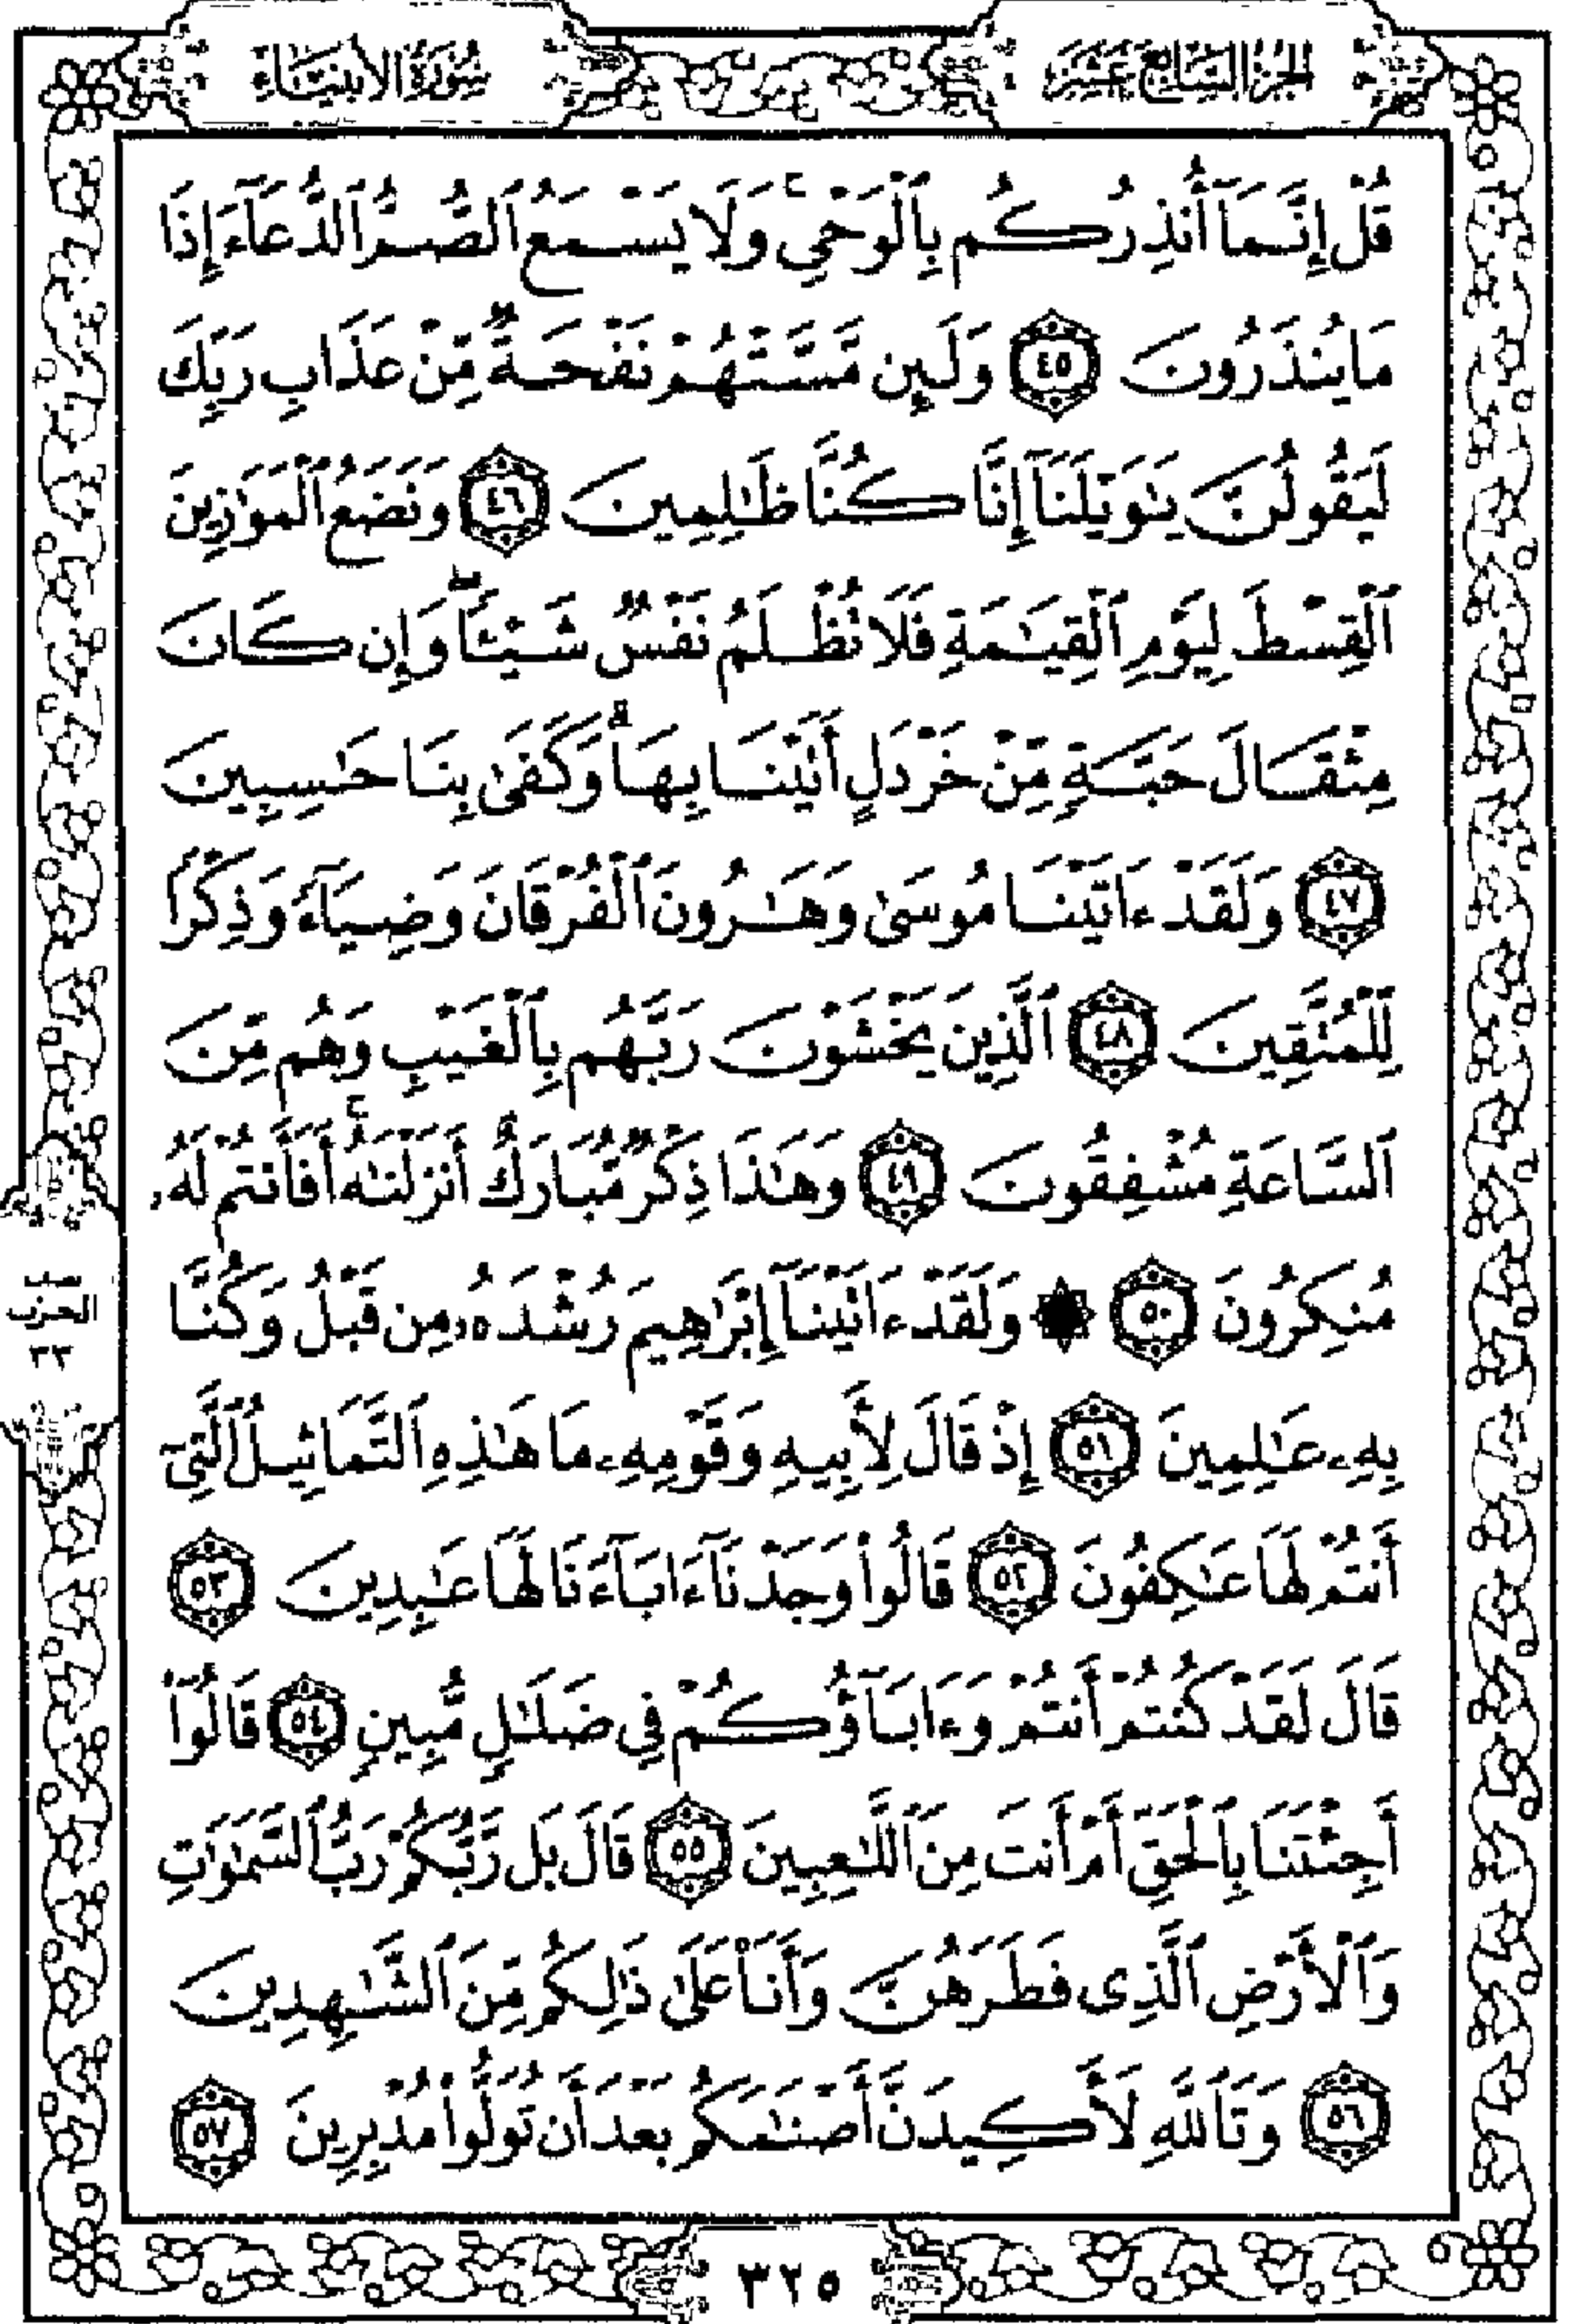 الجزء السابع عشر
سورة الأنبياء
قُلْ إِنَّمَآ أُنذِرُكُم بِٱلْوَحْىِ ۚ وَلَا يَسْمَعُ ٱلصُّمُّ ٱلدُّعَآءَ إِذَا
مَا يُنذَرُونَ ٤٥ وَلَئِن مَّسَّتْهُمْ نَفْحَةٌ مِّنْ عَذَابِ رَبِّكَ
لَيَقُولُنَّ يَٰوَيْلَنَآ إِنَّا كُنَّا ظَٰلِمِينَ ٤٦ وَنَضَعُ ٱلْمَوَٰزِينَ
ٱلْقِسْطَ لِيَوْمِ ٱلْقِيَٰمَةِ فَلَا تُظْلَمُ نَفْسٌ شَيْـًٔا ۖ وَإِن كَانَ
مِثْقَالَ حَبَّةٍ مِّنْ خَرْدَلٍ أَتَيْنَا بِهَا ۗ وَكَفَىٰ بِنَا حَٰسِبِينَ
٤٧ وَلَقَدْ ءَاتَيْنَا مُوسَىٰ وَهَٰرُونَ ٱلْفُرْقَانَ وَضِيَآءً وَذِكْرًا
لِّلْمُتَّقِينَ ٤٨ ٱلَّذِينَ يَخْشَوْنَ رَبَّهُم بِٱلْغَيْبِ وَهُم مِّنَ
ٱلسَّاعَةِ مُشْفِقُونَ ٤٩ وَهَٰذَا ذِكْرٌ مُّبَارَكٌ أَنزَلْنَٰهُ ۚ أَفَأَنتُمْ لَهُۥ
مُنكِرُونَ ٥٠ ۞ وَلَقَدْ ءَاتَيْنَآ إِبْرَٰهِيمَ رُشْدَهُۥ مِن قَبْلُ وَكُنَّا
بِهِۦ عَٰلِمِينَ ٥١ إِذْ قَالَ لِأَبِيهِ وَقَوْمِهِۦ مَا هَٰذِهِ ٱلتَّمَاثِيلُ ٱلَّتِىٓ
أَنتُمْ لَهَا عَٰكِفُونَ ٥٢ قَالُوا۟ وَجَدْنَآ ءَابَآءَنَا لَهَا عَٰبِدِينَ ٥٣
قَالَ لَقَدْ كُنتُمْ أَنتُمْ وَءَابَآؤُكُمْ فِى ضَلَٰلٍ مُّبِينٍ ٥٤ قَالُوٓا۟
أَجِئْتَنَا بِٱلْحَقِّ أَمْ أَنتَ مِنَ ٱللَّٰعِبِينَ ٥٥ قَالَ بَل رَّبُّكُمْ رَبُّ ٱلسَّمَٰوَٰتِ
وَٱلْأَرْضِ ٱلَّذِى فَطَرَهُنَّ وَأَنَا۠ عَلَىٰ ذَٰلِكُم مِّنَ ٱلشَّٰهِدِينَ
٥٦ وَتَٱللَّهِ لَأَكِيدَنَّ أَصْنَٰمَكُم بَعْدَ أَن تُوَلُّوا۟ مُدْبِرِينَ ٥٧
الحزب
٣٢٥